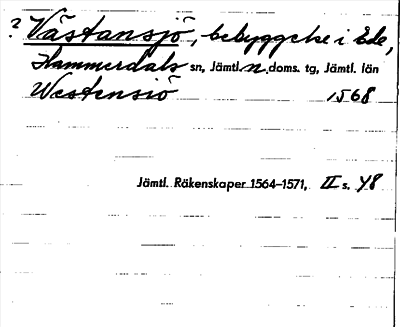 ? Västansjö, bebyggelse i Ede,
Hammerdals sn, Jämtl. n. doms. tg, Jämtl. län
Westensiö 1568
Jämtl. Räkenskaper 1564–1571, II s. 48